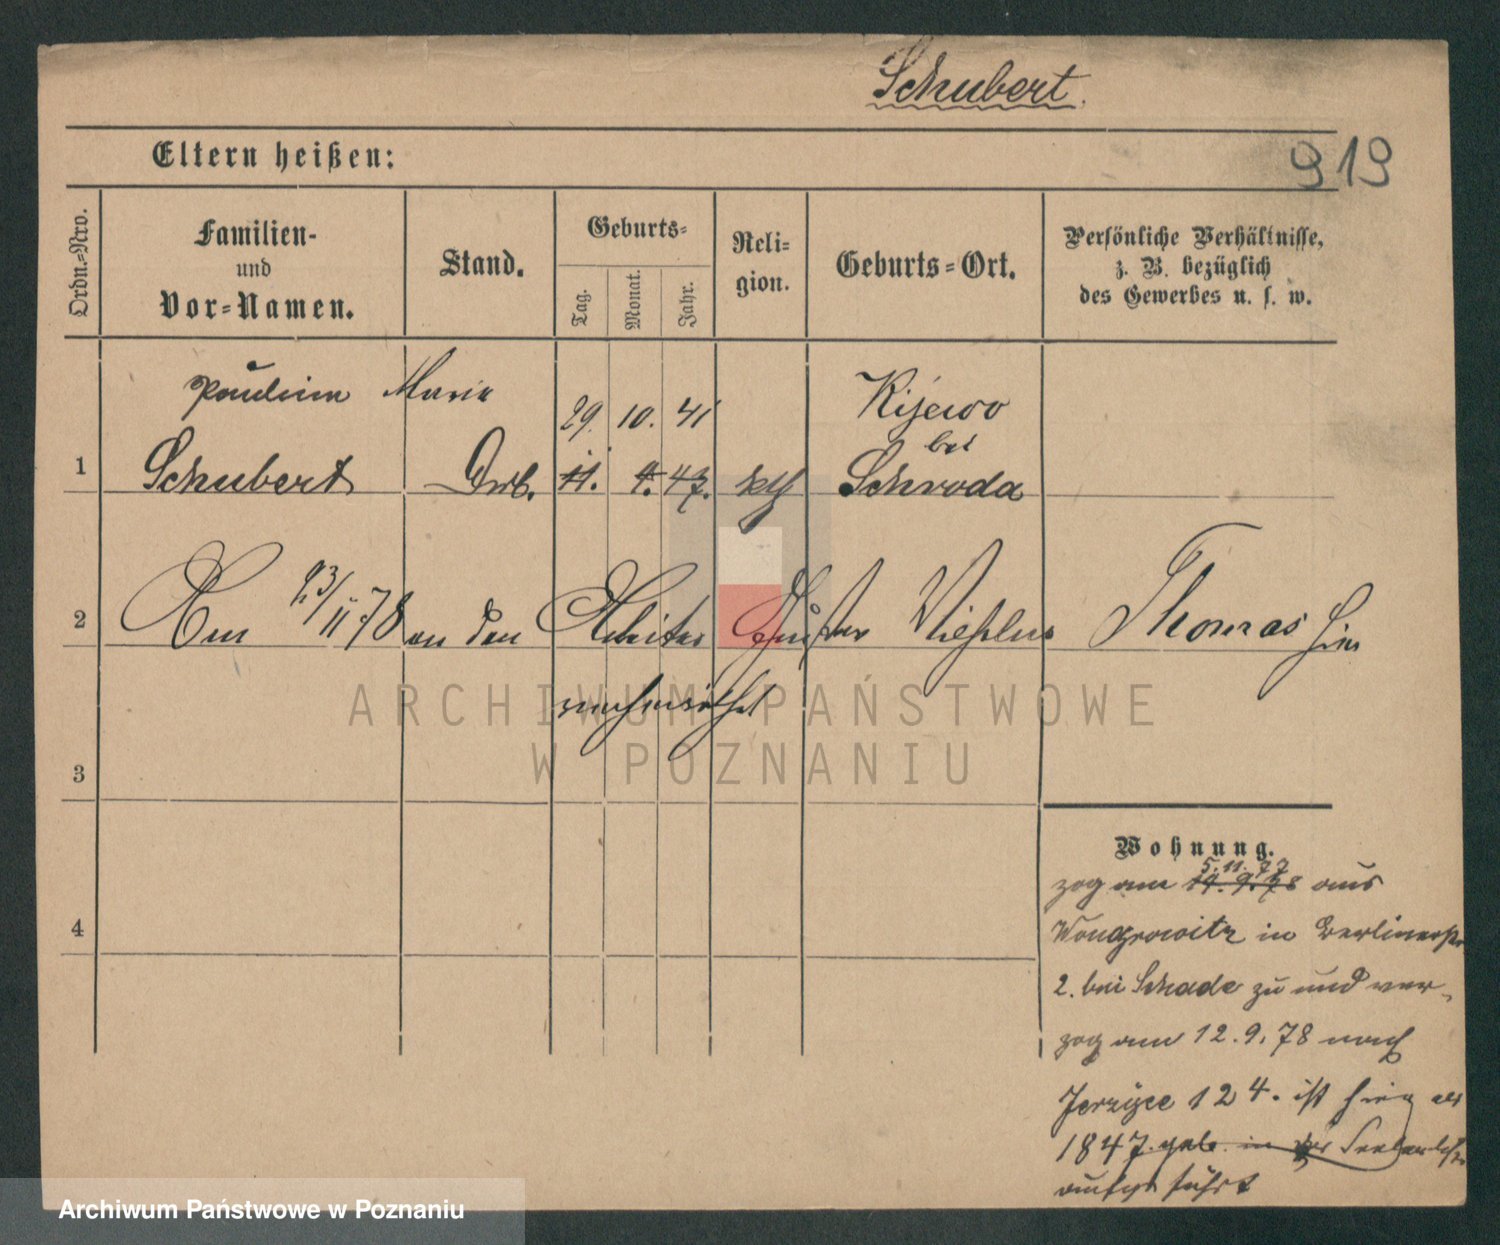 Schubert.
919
Eltern heißen:
Ordn.-Nro.
Familien-
und
Vor-Namen.
Stand.
Geburts-
Tag.
Monat.
Jahr.
Reli-
gion.
Geburts-Ort.
Persönliche Verhältnisse,
z. B. bezüglich
des Gewerbes u. s. w.
Marie
29. 10. 41
Kijewo
bei
1 Schubert 11. 4. 47. kth Schroda
2 Am 23/11 78 an den Thomas hier
3
4
Wohnung.
5. 11. 77
zog am 14. 9. 78 aus
Wongrowitz in Berlinerstr
2. bei Schade zu und ver-
zog am 12. 9. 78 nach
Jerzyce 124. ist hier als
1847 geb. in der
aufgeführt
ARCHIWUM PAŃSTWOWE
W POZNANIU
Archiwum Państwowe w Poznaniu